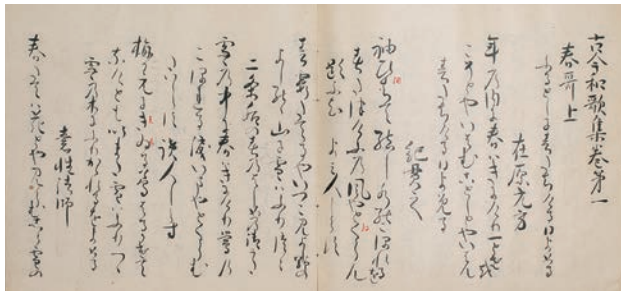 古今和歌集巻第一
春哥上
ふるとしに春たちける日よめる
在原元方
年の内に春はきにけり一とせを
こそとやいはむことしとやいはん
春たちける日よめる
紀貫之
袖ひちて結し水のこほれるを
春たつけふの風やとくらん
題しらす　よみ人しらす
春霞たてるやいつこみよしのゝ
よしのゝ山に雪はふりつゝ
二条后の春のはしめの御うた
雪の中に春はきにけり鶯の
こほれる涙いまやとくらむ
たいしらす　読人しらす
梅かえにきゐる鶯春かけて
なけともいまた雪はふりつゝ
雪の木にふりかゝれるをよめる
素性法師
春たては花とや見らむ白雪の